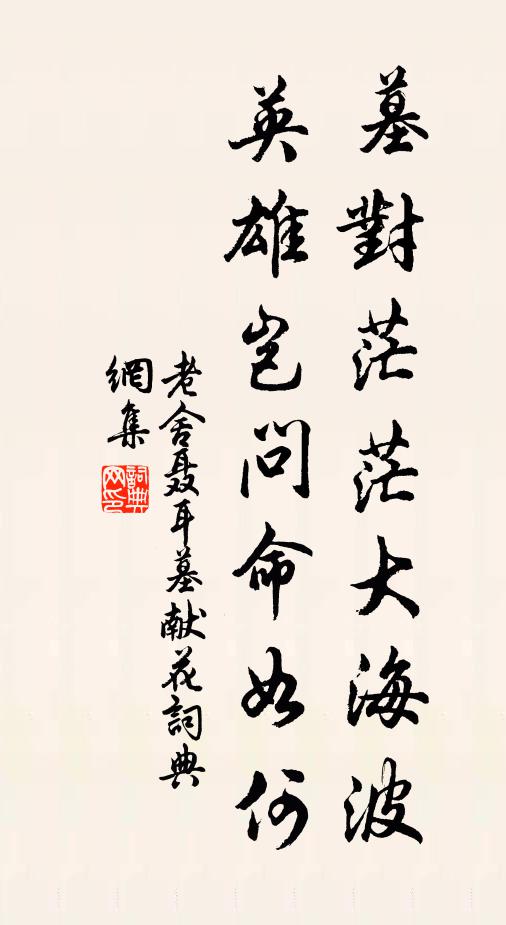 墓對茫茫大海波
英雄豈問命如何
老舍聂耳墓献花詞典
網集
詞典
网印